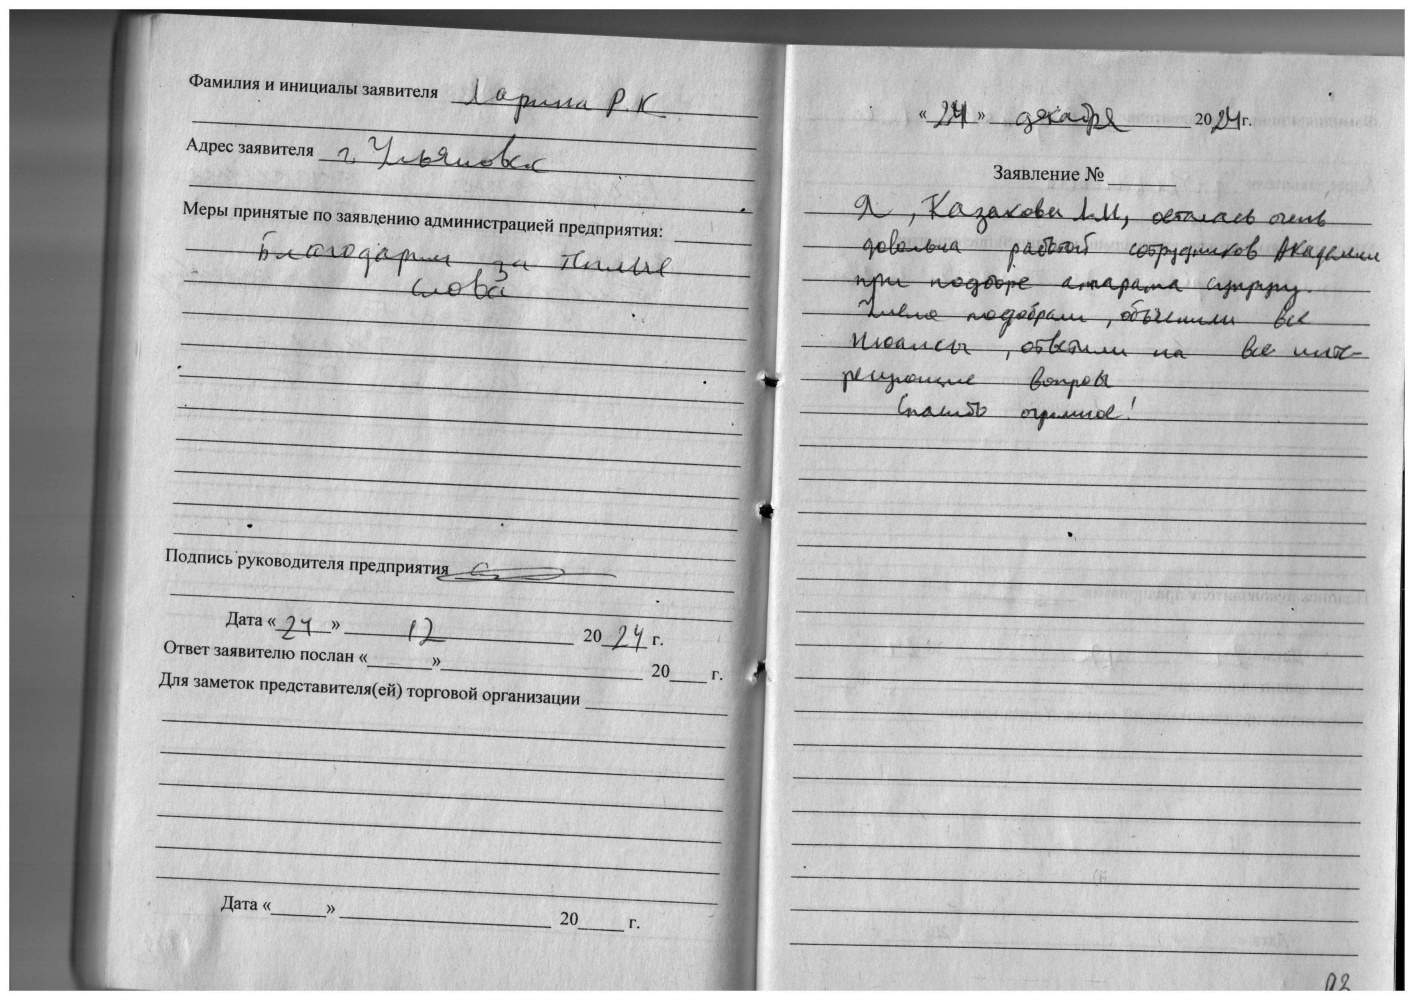 Фамилия и инициалы заявителя Ларина Р.К
Адрес заявителя г. Ульяновск
Меры принятые по заявлению администрацией предприятия:
Благодарим за теплые
слова
Подпись руководителя предприятия
Дата «24» 12 2024 г.
Ответ заявителю послан «______»____________ 20____ г.
Для заметок представителя(ей) торговой организации
Дата «______» ____________ 20_____ г.
«24» декабря 2024г.
Заявление №
Я, Казакова А.И, осталась очень
довольна работой сотрудников Академии
при подборе аппарата супругу.
подобрали, объяснили все
нюансы, ответили на все инте-
ресующие вопросы
Спасибо огромное!